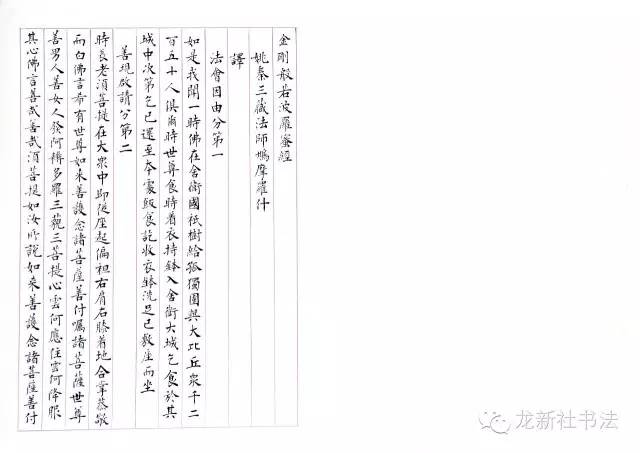 金剛般若波羅蜜經
姚秦三藏法師鳩摩羅什
譯
法會因由分第一
如是我聞一時佛在舍衛國祇樹給孤獨園與大比丘衆千二
百五十人俱爾時世尊食時着衣持鉢入舍衛大城乞食於其
城中次第乞已還至本處飯食訖收衣鉢洗足已敷座而坐
善現啟請分第二
時長老須菩提在大衆中即從座起偏袒右肩右膝着地合掌恭敬
而白佛言希有世尊如来善護念諸菩薩善付囑諸菩薩世尊
善男人善女人發阿耨多羅三藐三菩提心雲何應住雲何降服
其心佛言善哉善哉須菩提如汝所說如来善護念諸菩薩善付
龙新社书法